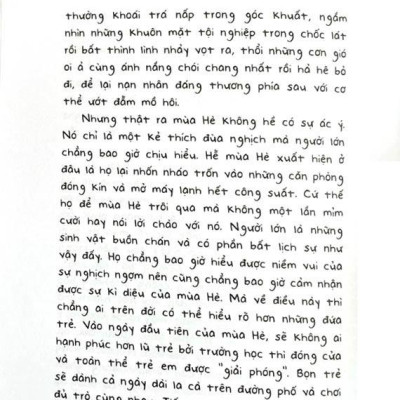 thưởng khoái trá nấp trong góc khuất, ngắm
nhìn những khuôn mặt tội nghiệp trong chốc lát
rồi bất thình lình nhảy vọt ra, thổi những cơn gió
oi ả cùng ánh nắng chói chang nhất rồi hả hê bỏ
đi, để lại nạn nhân đáng thương phía sau với cơ
thể ướt đẫm mồ hôi.
Nhưng thật ra mùa Hè không hề có sự ác ý.
Nó chỉ là một kẻ thích đùa nghịch mà người lớn
chẳng bao giờ chịu hiểu. Hễ mùa Hè xuất hiện ở
đâu là họ lại nhốn nháo trốn vào những căn phòng
đóng kín và mở máy lạnh hết công suất. Cứ thế
họ để mùa Hè trôi qua mà không một lần mỉm
cười hay nói lời chào với nó. Người lớn là những
sinh vật buồn chán và có phần bất lịch sự như
vậy đấy. Họ chẳng bao giờ hiểu được niềm vui của
sự nghịch ngợm nên cũng chẳng bao giờ cảm nhận
được sự kì diệu của mùa Hè. Mà về điều này thì
chẳng ai trên đời có thể hiểu rõ hơn những đứa
trẻ. Vào ngày đầu tiên của mùa Hè, sẽ không ai
hạnh phúc hơn lũ trẻ bởi trường học thì đóng cửa
và toàn thể trẻ em được "giải phóng". Bọn trẻ
sẽ dành cả ngày dài la cà trên đường phố và chơi
đủ trò cùng nhau.